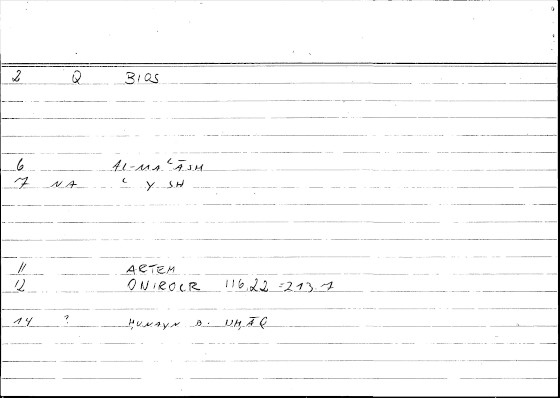 2 Q BIOS
6 AL-MAʿĀSH
7 NA ʿ Y SH
11 ARTEM
12 ONIROCR 116.22 = 213.7
14 ? ḤUNAYN B.